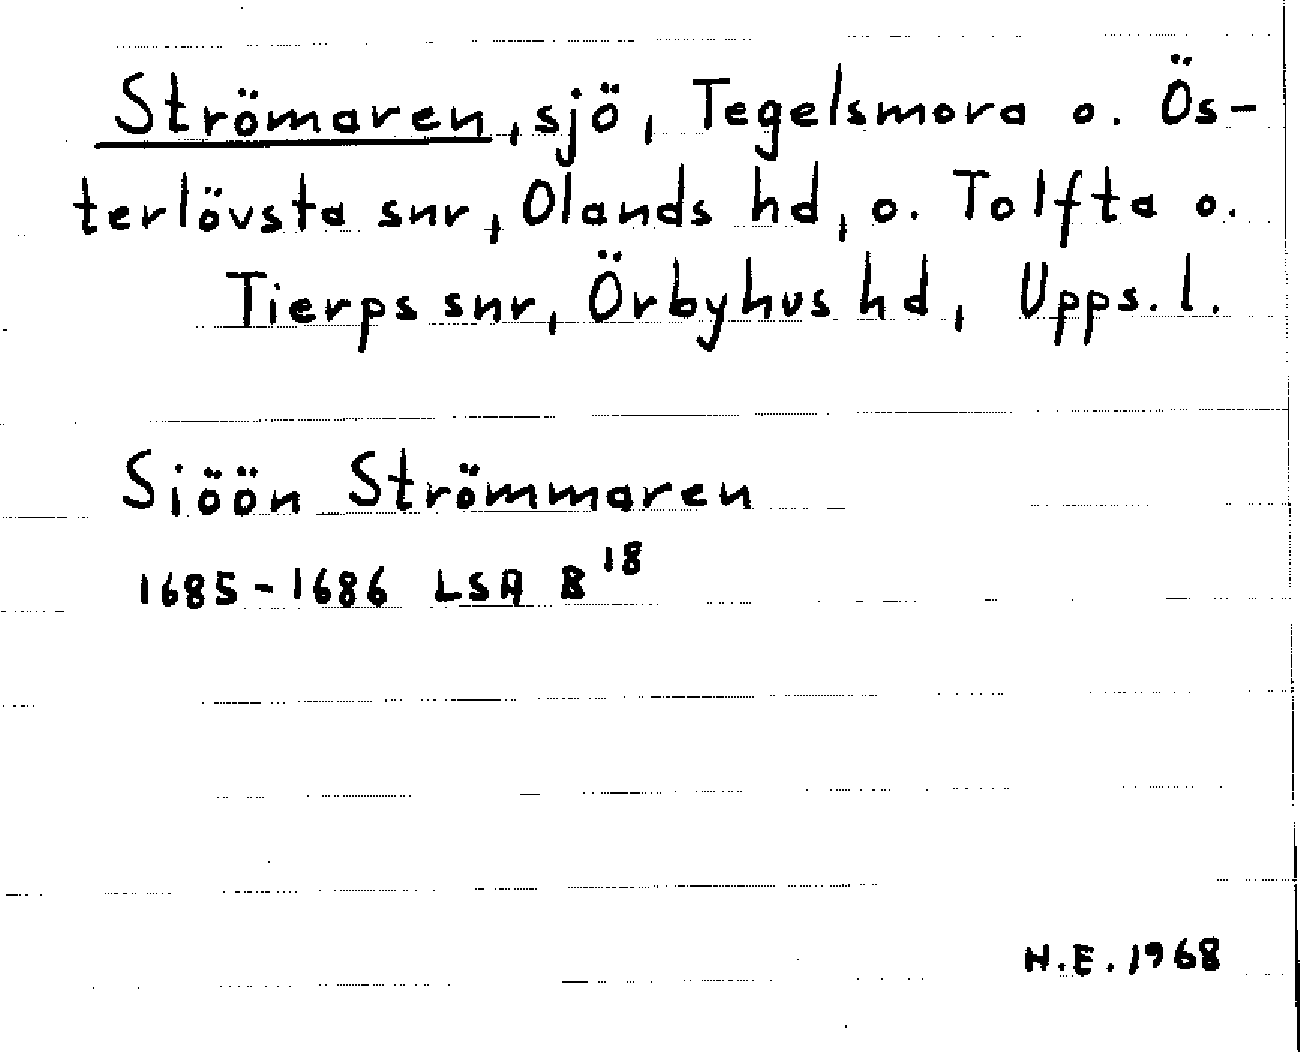 Strömaren, sjö, Tegelsmora o. Ös-
terlövsta snr, Olands hd, o. Tolfta o.
Tierps snr, Örbyhus hd, Upps. l.
Siöön Strömmaren
1685-1686 LSA B 18
H.E. 1968